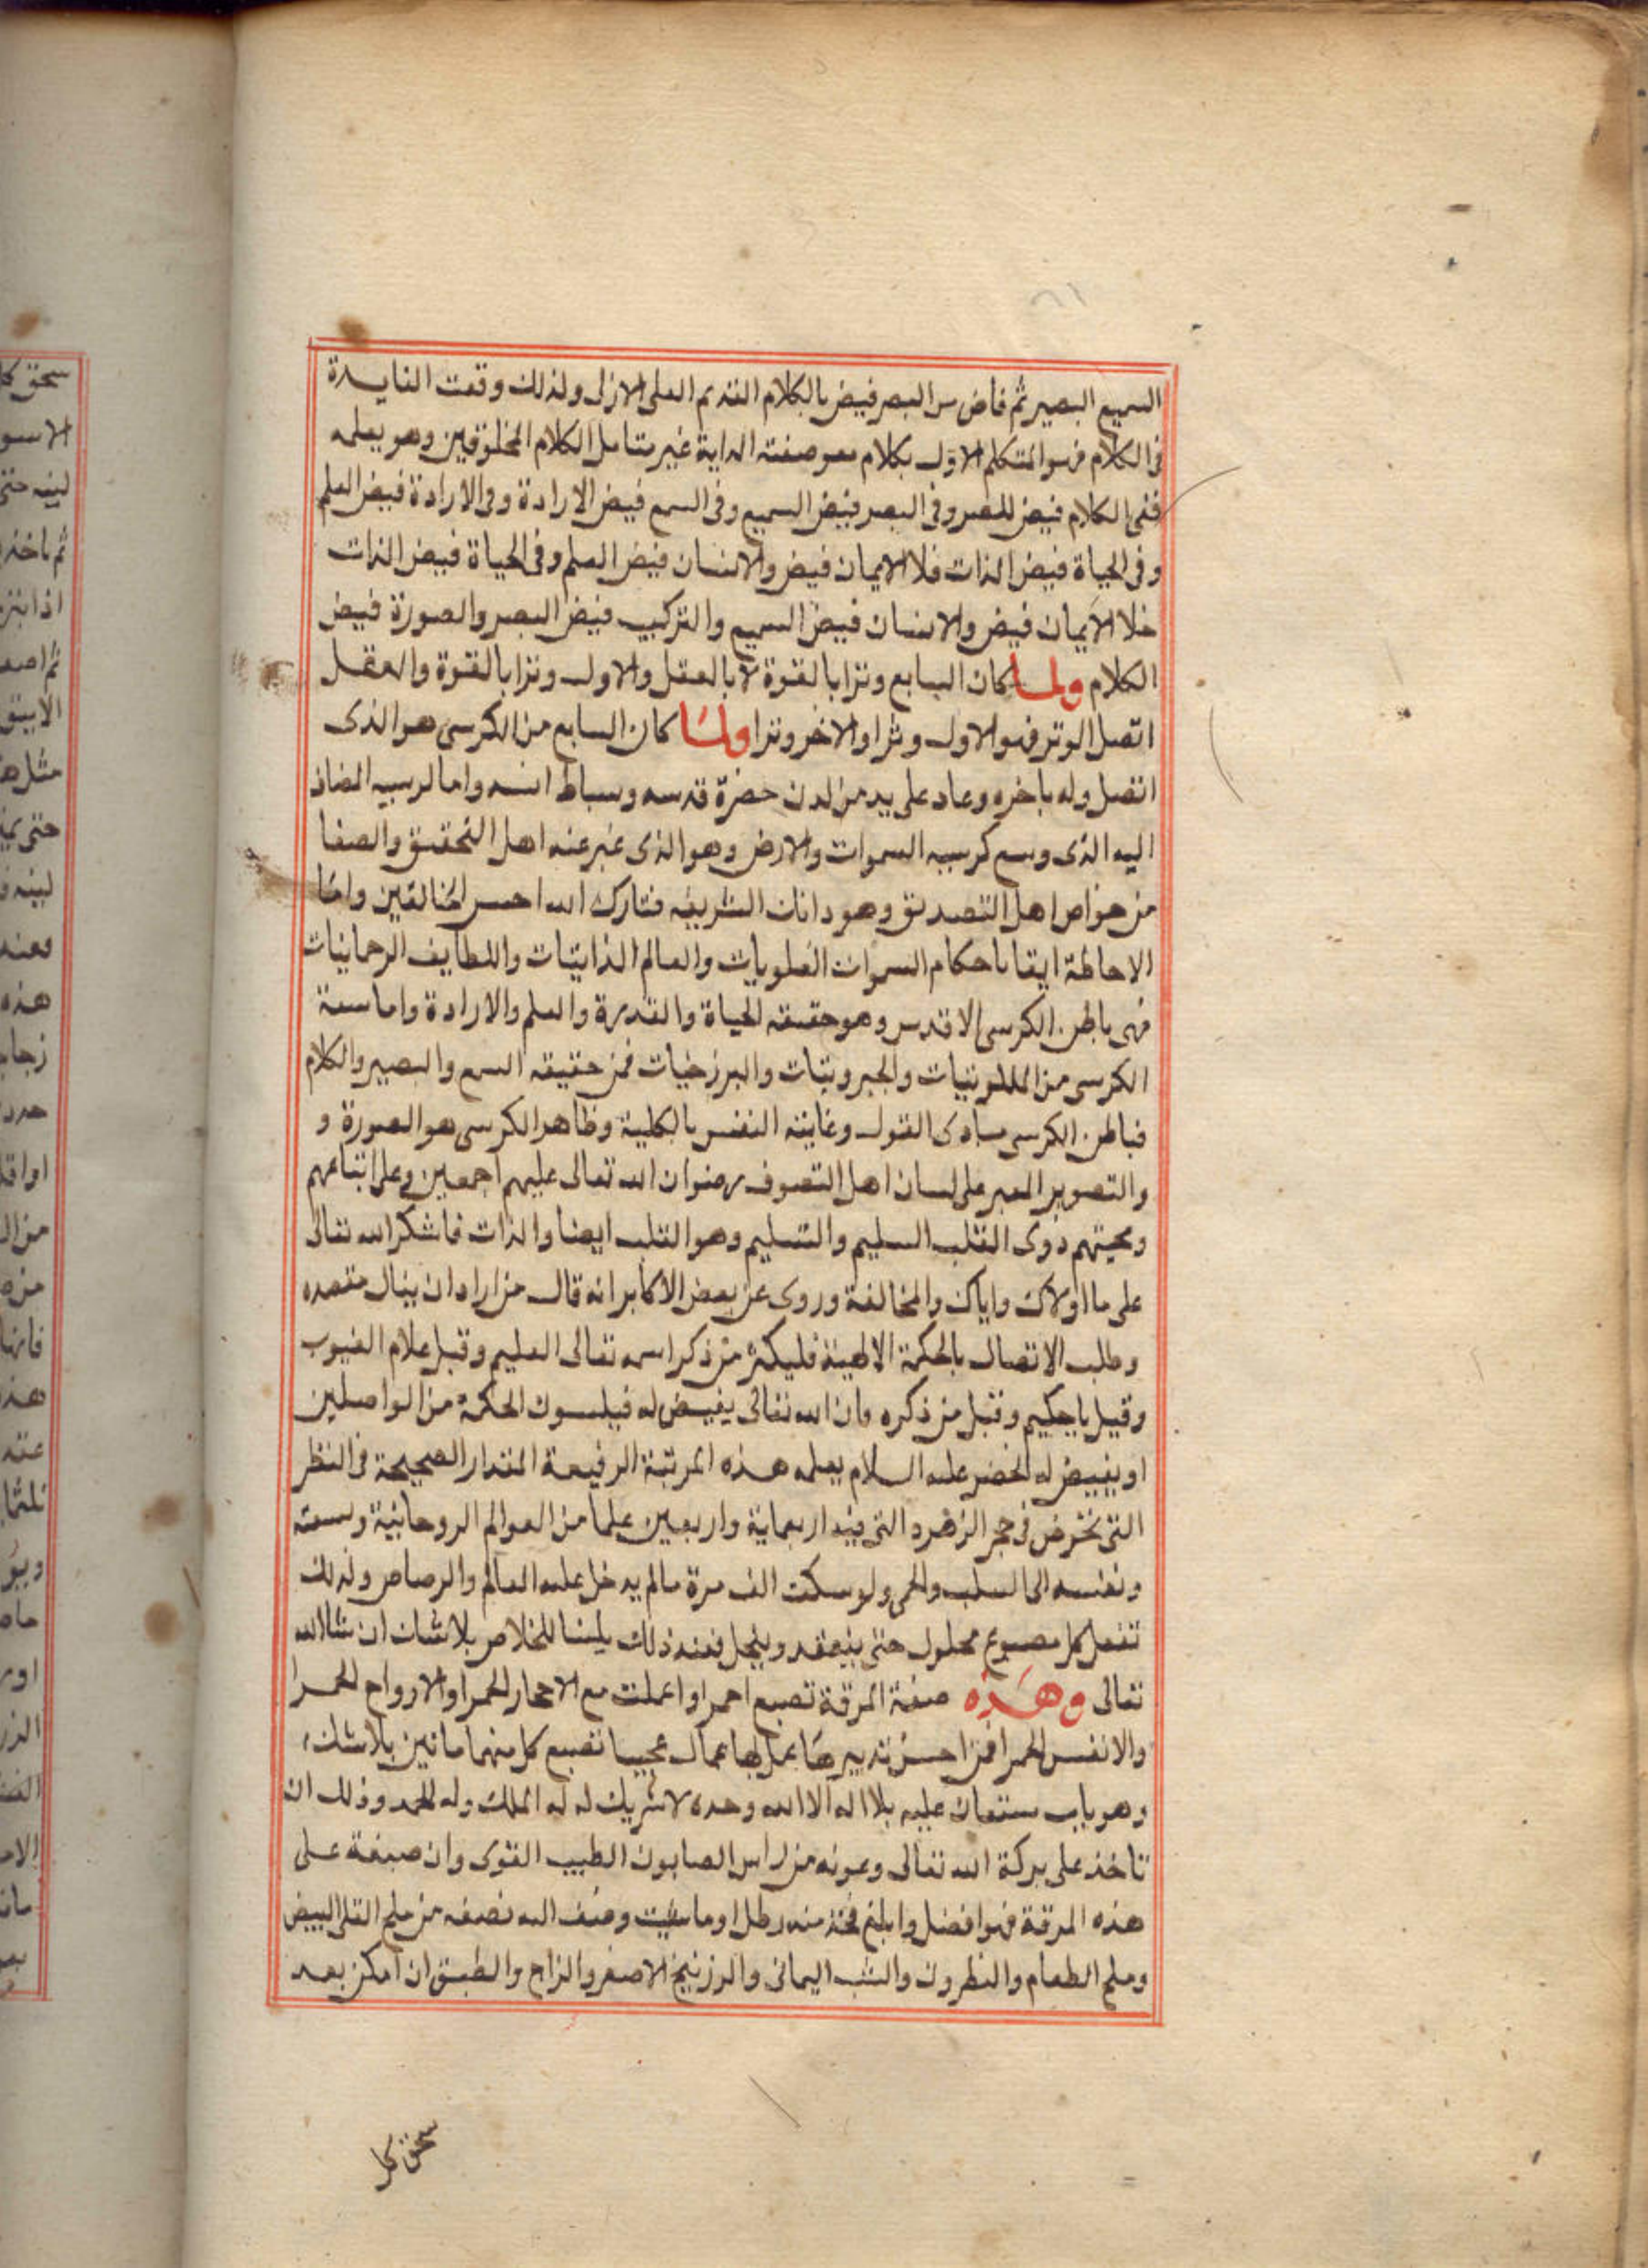 السميع البصير ثم فاض سر البصر فيض بالكلام القديم العلى الازلى ولذلك وقعت الفايدة
فى الكلام فهو المتكلم الاول بكلام هو صفته الداية غير متامل الكلام المخلوقين وهو يعلمه
ففى الكلام فيض للبصر وفى البصر فيض السميع وفى السمع فيض الارادة وفى الارادة فيض العلم
وفى الحياة فيض الذات فلا الايمان فيض والانسان فيض العلم وفى الحياة فيض الذات
خلا الايمان فيض والانسان فيض السميع والتركيب فيض البصر والصورة فيض
الكلام ولما كان السابع وترا بالقوة لا بالعقل والاول وترا بالقوة والعقل
اتصل الوتر فهو الاول وترا والاخر وترا ولما كان السابع من الكرسى هو الذى
اتصل وله باخره وعاد على يد من لدن حضرة قدسه وبساط انسه واما لرسيه المضاف
اليه الذى وسع كرسيه السموات والارض وهو الذى عبر عنه اهل التحقيق والصفا
من خواص اهل التصديق وهو داناك الشريفه فتبارك الله احسن الخالقين واما
الاحاطة ايقا باحكام السموات العلويات والعالم الذاتيات واللطايف الرحمانيات
فهى باطن الكرسى الاقدس وهو حقيقه الحياة والقدرة والعلم والارادة واما سعة
الكرسى من الملكوتيات والجبروتيات والبرزخيات فمن حقيقه السمع والبصير والكلام
فباطن الكرسى مبادى القول وغايته النفس بالكلية وظاهر الكرسى هو الصورة و
والتصوير المعبر على لسان اهل التصوف رضوان الله تعالى عليهم اجمعين وعلى اتباعهم
ومحبتهم ذوى القلب السليم والتسليم وهو القلب ايضا والذات فاشكر الله تعالى
على ما اولاك واياك والمخالفة وروى عن بعض الاكابر انه قال من اراد ان ينال مقصده
وطلب الاتصال بالحكمة الالهية فليكثر من ذكر اسمه تعالى العليم وقيل علام الغيوب
وقيل يا حكيم وقيل من ذكره فان الله تعالى يفيض له فيلسوف الحكمة من الواصلين
او يفيض له الخضر عليه السلام يعلمه هذه المرتبة الرفيعة المقدار الصحيحة فى النظر
التى تخرض فى حجر الزهرد التى فيه اربعماية واربعين علما من العوالم الروحانية وسعته
ونفسه الى السلب والحى ولو سكت الف مرة مالم يدخل عليه العالم والرصاص ولذلك
تفعل كل مصبوغ محلول حتى ينعقد وينحل فعند ذلك يلينا للخلاص بلا شك ان شا الله
تعالى وهذه صفة المرقة تصبع احمر او اعملت مع الاحجار الحمرا والارواح الحمرا
والانفس الحمرا فمن احسن تدبيرها عمل بها عمال عجيبا تصبع كل منهما ماتين بلا شك
وهو باب ستعان عليه بلا اله الا الله وحده لا شريك له له الملك وله الحمد وذلك ان
تاخذ على بركة الله تعالى وعونه من راس الصابون الطيب القوى وان صبغة على
هذه المرقة فهو افضل وابلغ فخذ منه رطل او ماشيت وضف اليه نصفه من ملح القلى البيض
وملح الطعام والنطرون والشب اليمانى والزرنيخ الاصفر والزاج والطبق ان امكن بعد
سحق كل